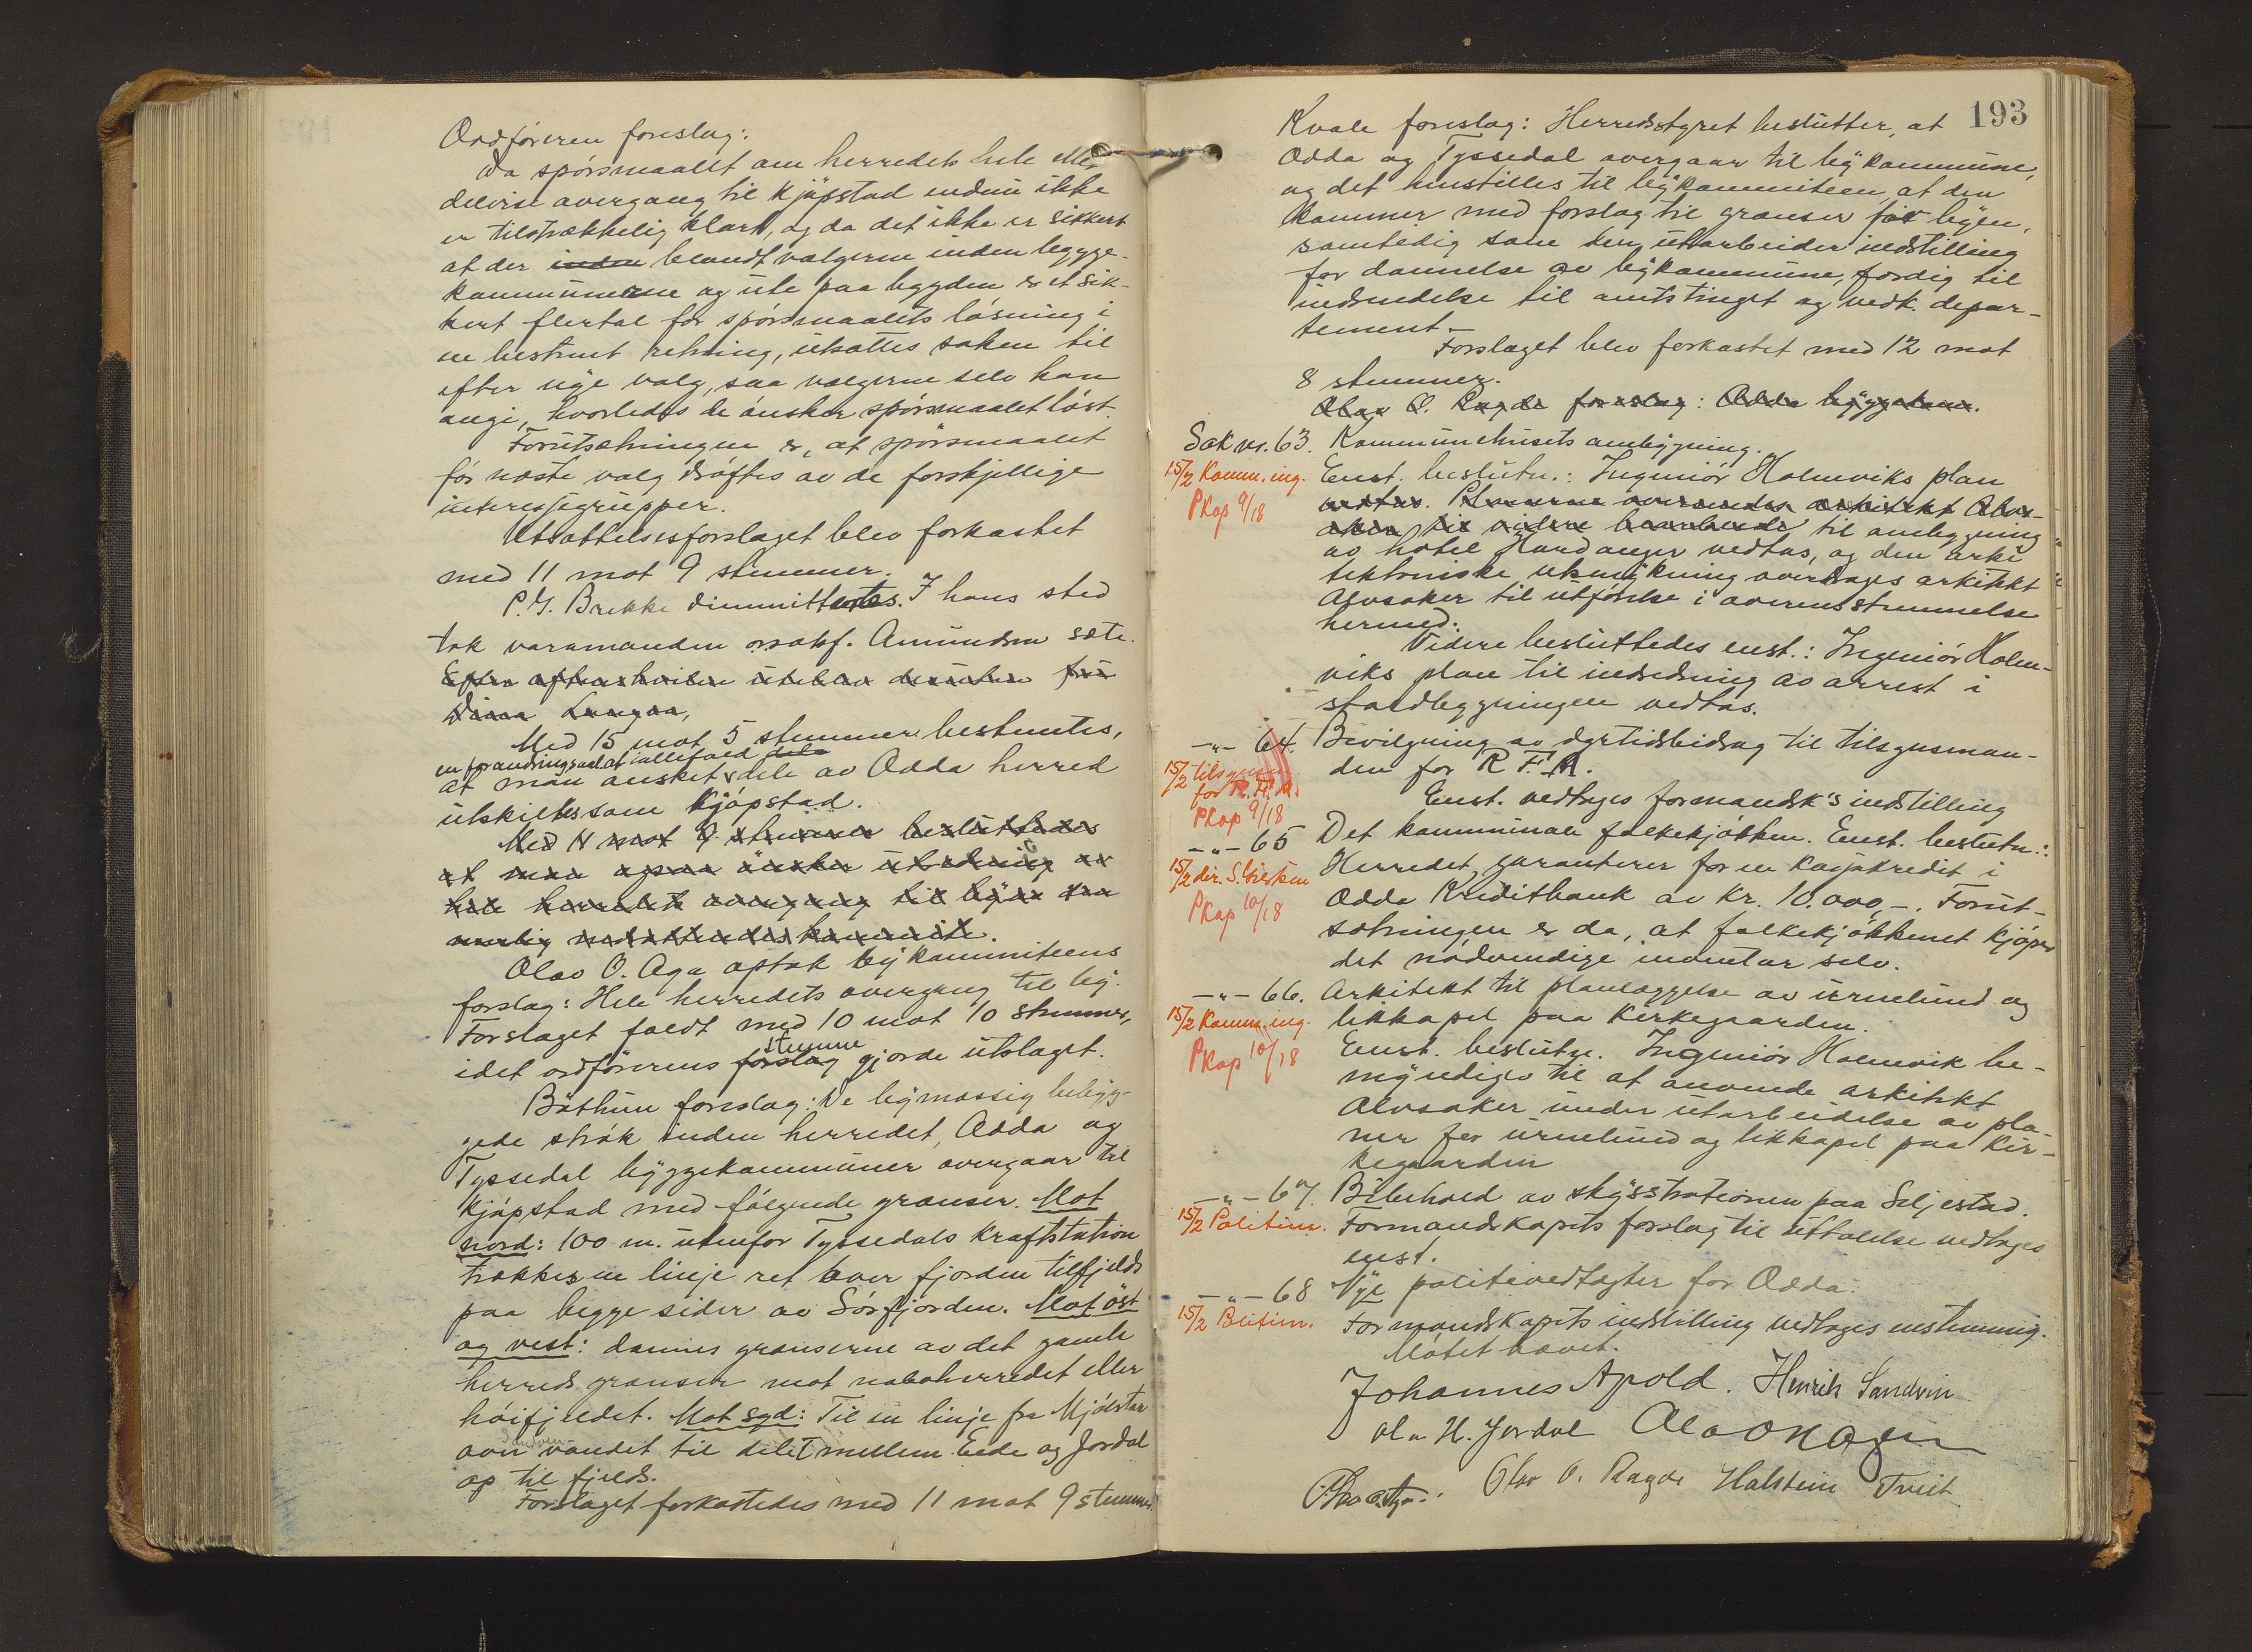 Ordføreren foreslog:
Da spørsmaalet om herredets hele eller
delvise overgang til kjøpstad endnu ikke
er tilstrækkelig klart, og da det ikke er sikkert
at der inden blandt vælgerne inden bygge-
kommunerne og ute paa bygden er et sik-
kert flertal for spørsmaalets løsning i
en bestemt retning, utsættes saken til
efter nye valg, saa vælgerne selv kan
angi, hvorledes de ønsker spørsmaalet løst.
Forutsætningen er, at spørsmaalet
før næste valg drøftes av de forskjellige
interessegrupper.
Utsættelsesforslaget blev forkastet
med 11 mot 9 stemmer.
P. G. Brekke dimmittertes. I hans sted
tok varamanden o.rsakf. Amundsen sæte.
Efter aftenshvilen uteblev desuten fru
Diana Langaa,
Med 15 mot 5 stemmer bestemtes,
en forandring ved at iallefald dele
at man ønsket dele av Odda herred
utskiltes som kjøpstad.
Med 11 mot 9 stemmer besluttedes
at man ogsaa ønsker utredning av
hele herredets overgang til by
Olav O. Aga optok bykommiteens
forslag: Hele herredets overgang til by.
Forslaget faldt med 10 mot 10 stemmer,
stemme
idet ordførerens forslag gjorde utslaget.
Båthun foreslog: De bymæssig bebyg-
gede strøk inden herredet, Odda og
Tyssedal byggekommuner overgaar til
kjøpstad med følgende grænser. Mot
nord: 100 m. utenfor Tyssedals kraftstation
trækkes en linje ret over fjorden tilfjelds
paa begge sider av Sørfjorden. Mot øst
og vest: dannes grænserne av det gamle
herreds grænser mot naboherredet eller
høifjeldet. Mot syd: Til en linje fra Mjølstar
Sandven-
over vandet til delet mellem Eide og Jordal
op til fjelds.
Forslaget forkastedes med 11 mot 9 stemmer.
193
Kvale foreslog: Herredsstyret beslutter, at
Odda og Tyssedal overgaar til bykommune,
og det henstilles til bykommiteen, at den
kommer med forslag til grænser for byen,
samtidig som den utarbeider indstilling
for dannelse av bykommune, færdig til
indsendelse til amtstinget og vedk. depar-
tement.
Forslaget blev forkastet med 12 mot
8 stemmer.
Olav O. Ragde foreslog: Odda
Sak nr. 63. Kommunehusets ombygning.
15/2 Komm. ing. Enst. beslutn.: Ingeniør Holmviks plan
PKop 9/18
vedtas. Planerne oversendes arkitekt Alvs-
aker til videre bearbeide til ombygning
av hotel Hardanger vedtas, og den arki
tektoniske utsmykning overdrages arkitekt
Alvsaker til utførelse i overensstemmelse
hermed.
Videre besluttedes enst.: Ingeniør Holm-
viks plan til indredning av arrest i
staldbygningen vedtas.
-"- 64. Bevilgning av dyrtidsbidrag til tilsynsman-
15/2 tilsynsm. den for R. F. A.
for R. F. A.
PKop 9/18
Enst. vedtages formandsk's indstilling
-"- 65 Det kommunale folkekjøkken. Enst. beslutn.:
15/2 dir. S. Giertsen Herredet garanterer for en kassakredit i
PKop 10/18
Odda Kreditbank av kr. 10.000,-. Forut-
sætningen er da, at folkekjøkkenet kjøper
det nødvendige inventar selv.
-"- 66. Arkitekt til planlæggelse av urnelund og
15/2 Komm. ing. likkapel paa kirkegaarden.
PKop 10/18
Enst. beslutn. Ingeniør Holmvik be-
myndiges til at anvende arkitekt
Alvsaker under utarbeidelse av pla-
ner for urnelund og likkapel paa kir-
kegaarden
-"- 67. Bibehold av skysstationen paa Seljestad.
15/2 Politim. Formandskapets forslag til uttalelse vedtages
enst.
-"- 68 Nye politivedtægter for Odda.
15/2 Politim. Formandskapets indstilling vedtages enstemmig.
Møtet hævet.
Johannes Apold. Henrik Sandvin
Ol. H. Jordal
Olav O. Ragde Halstein Tveit